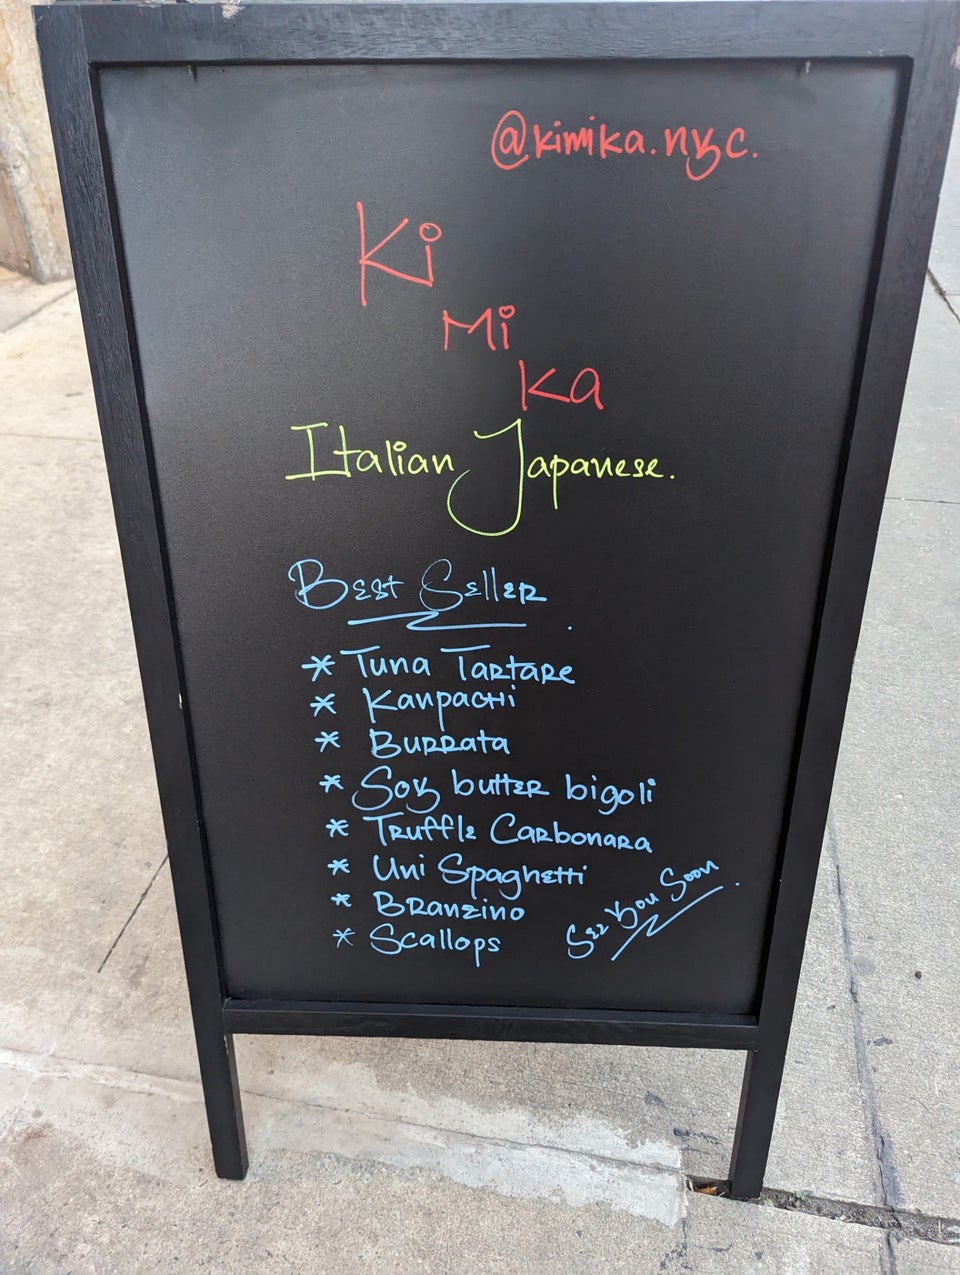 @kimika.nyc.
Ki
Mi
Ka
Italian Japanese.
Best Seller
* Tuna Tartare
* Kanpachi
* Burrata
* Soy butter bigoli
* Truffle Carbonara
* Uni Spaghetti
* Branzino
* Scallops
See you Soon